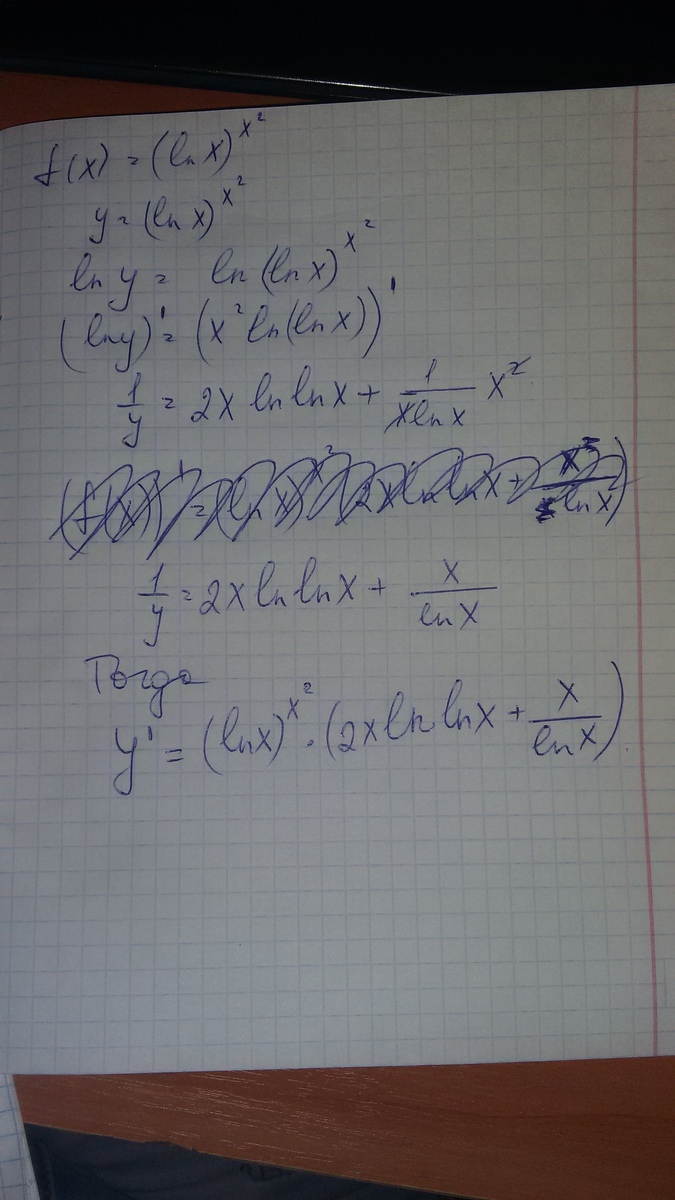 f(x) = (ln x)^x²
y = (ln x)^x²
ln y = ln (ln x)^x²
(ln y)' = (x² ln(ln x))'
1/y = 2x ln ln x + 1/(x ln x) x²
1/y = 2x ln ln x + x/(ln x)
Тогда
y' = (ln x)^x² · (2x ln ln x + x/(ln x))